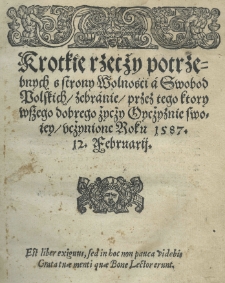 Krotkie rzeczy potrze-
bnych z strony Wolności á Swobod
Polskich / zebránie / przez tego ktory
wszego dobrego życzy Oyczyźnie swo-
iey / vczynione Roku 1587.
12. Februarij.
Est liber exiguus, sed in hoc non pauca videbis
Grata tuæ menti quæ Bone Lector erunt.